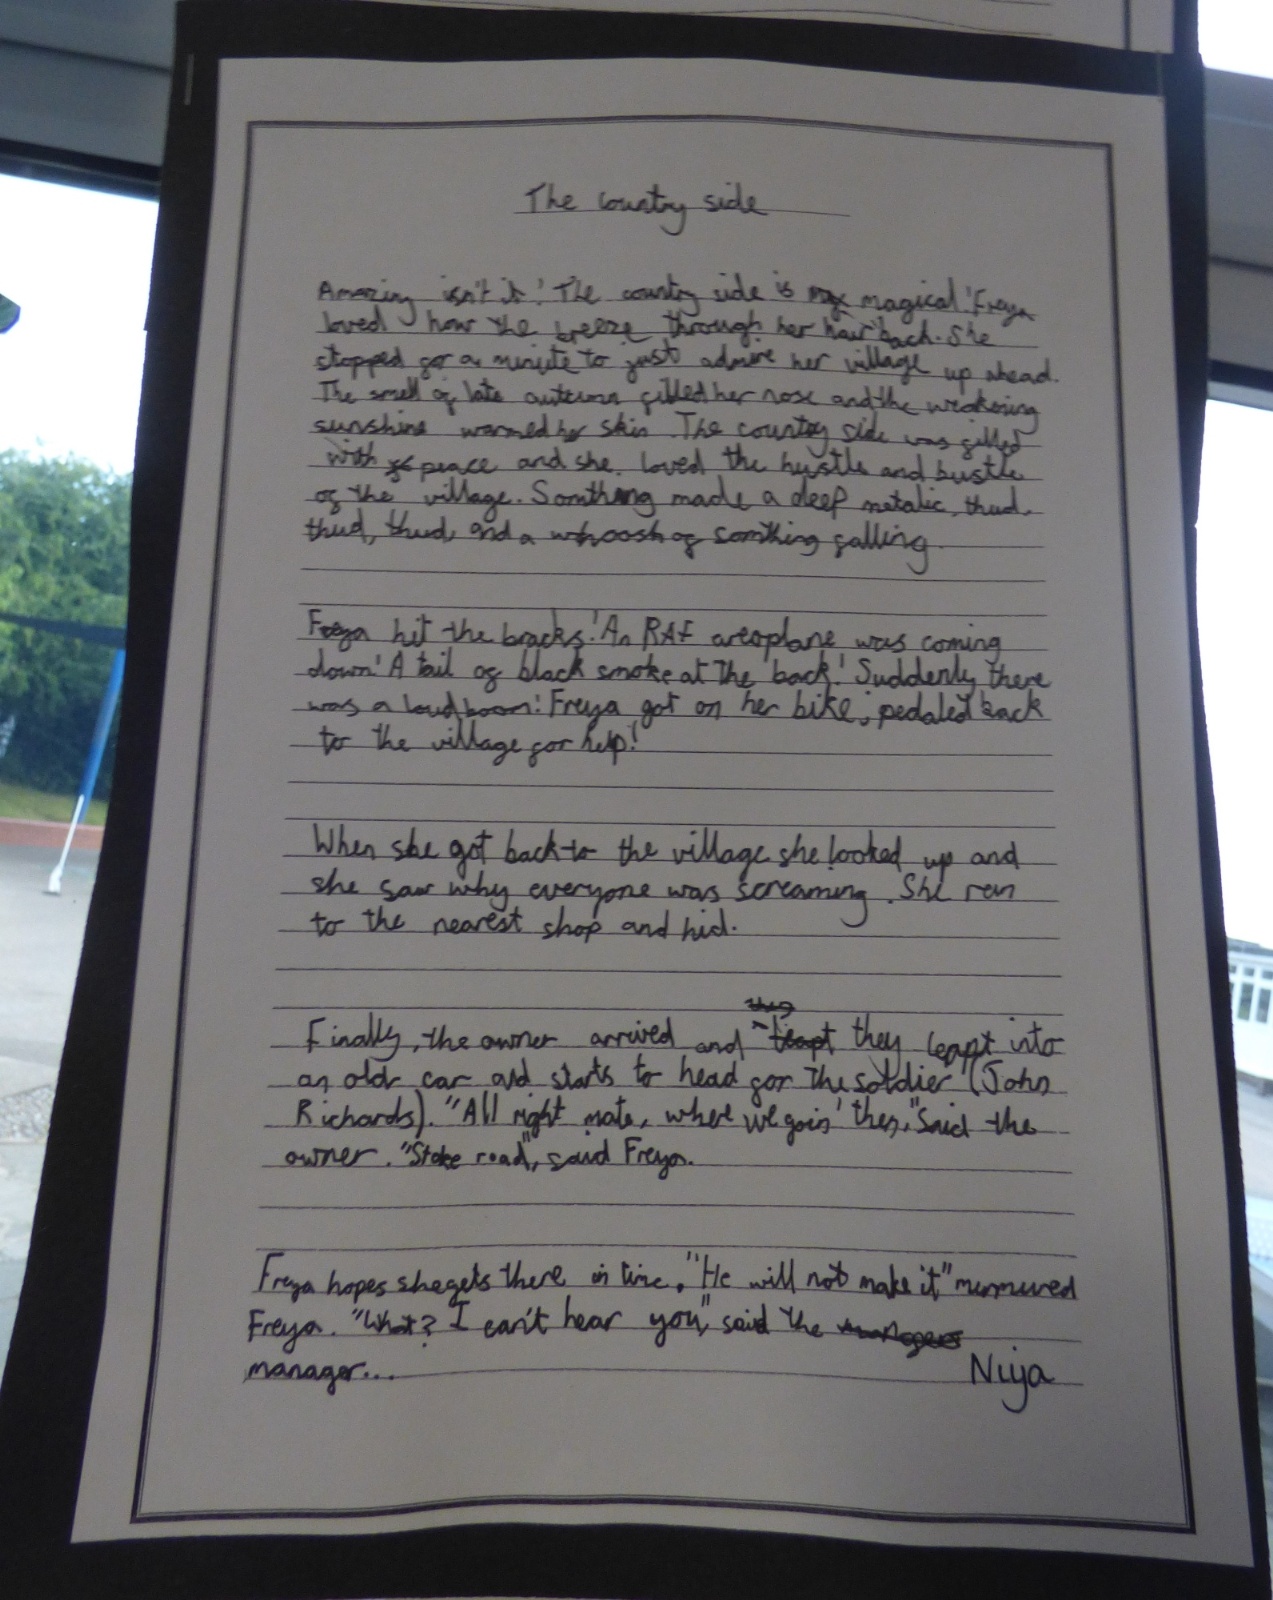 The country side
Amazing isn't it! The country side is magical! Freya
loved how the breeze through her hair back. She
stopped for a minute to just admire her village up ahead.
The smell of late autumn filled her nose and the weakening
sunshine warmed her skin. The country side was filled
with peace and she loved the hustle and bustle
of the village. Somthing made a deep metalic, thud,
thud, thud, and a whoosh of somthing falling.
Freya hit the bracks! An RAF areoplane was coming
down! A tail of black smoke at the back! Suddenly there
was a loud boom! Freya got on her bike, pedaled back
to the village for help!
When she got back to the village she looked up and
she saw why everyone was screaming. She ran
to the nearest shop and hid.
Finally, the owner arrived and they leapt into
an old car and starts to head for the soldier (John
Richards). "All right mate, where we goin' then," Said the
owner. "Stoke road", said Freya.
Freya hopes she gets there in time. "He will not make it" murmured
Freya. "What? I can't hear you", said the
manager...
Niya